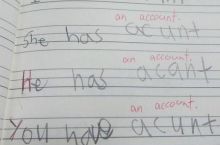 an account.
She has acunt
an account.
He has acant
an account.
You have acunt